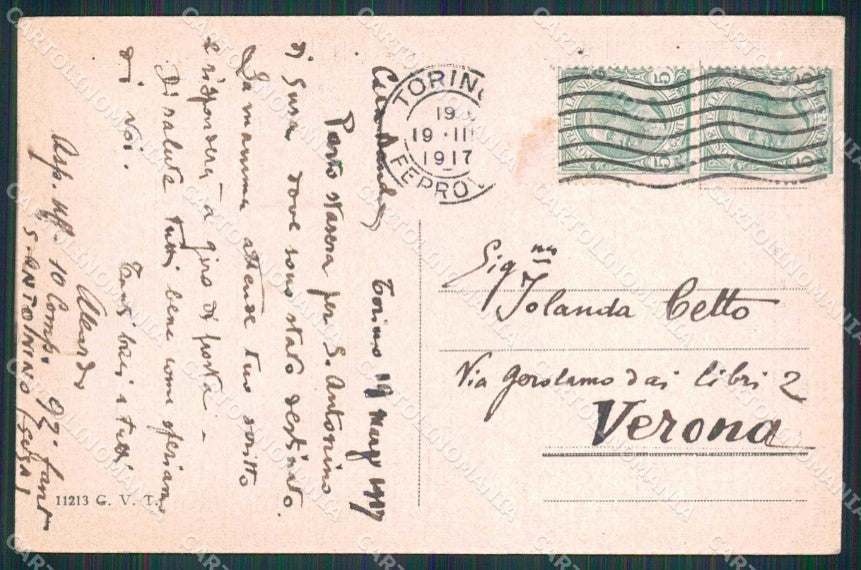 Torino 19 marzo 1917
Parto stasera per S. Antonino
di Susa dove sono stato destinato.
La mamma attende tuo scritto
e risponderà a giro di posta -
Di salute tutti bene come speriamo
di voi.
Tanti baci a tutti
Asp. uff. 10 Comp. 92. fant
S. ANTONINO (Susa)
11213 G. V. T.
TORINO
19
19 · III
1917
FERROV
Sig.na
Jolanda Cetto
Via Gerolamo dai libri 2
Verona
CARTOLINOMANIA